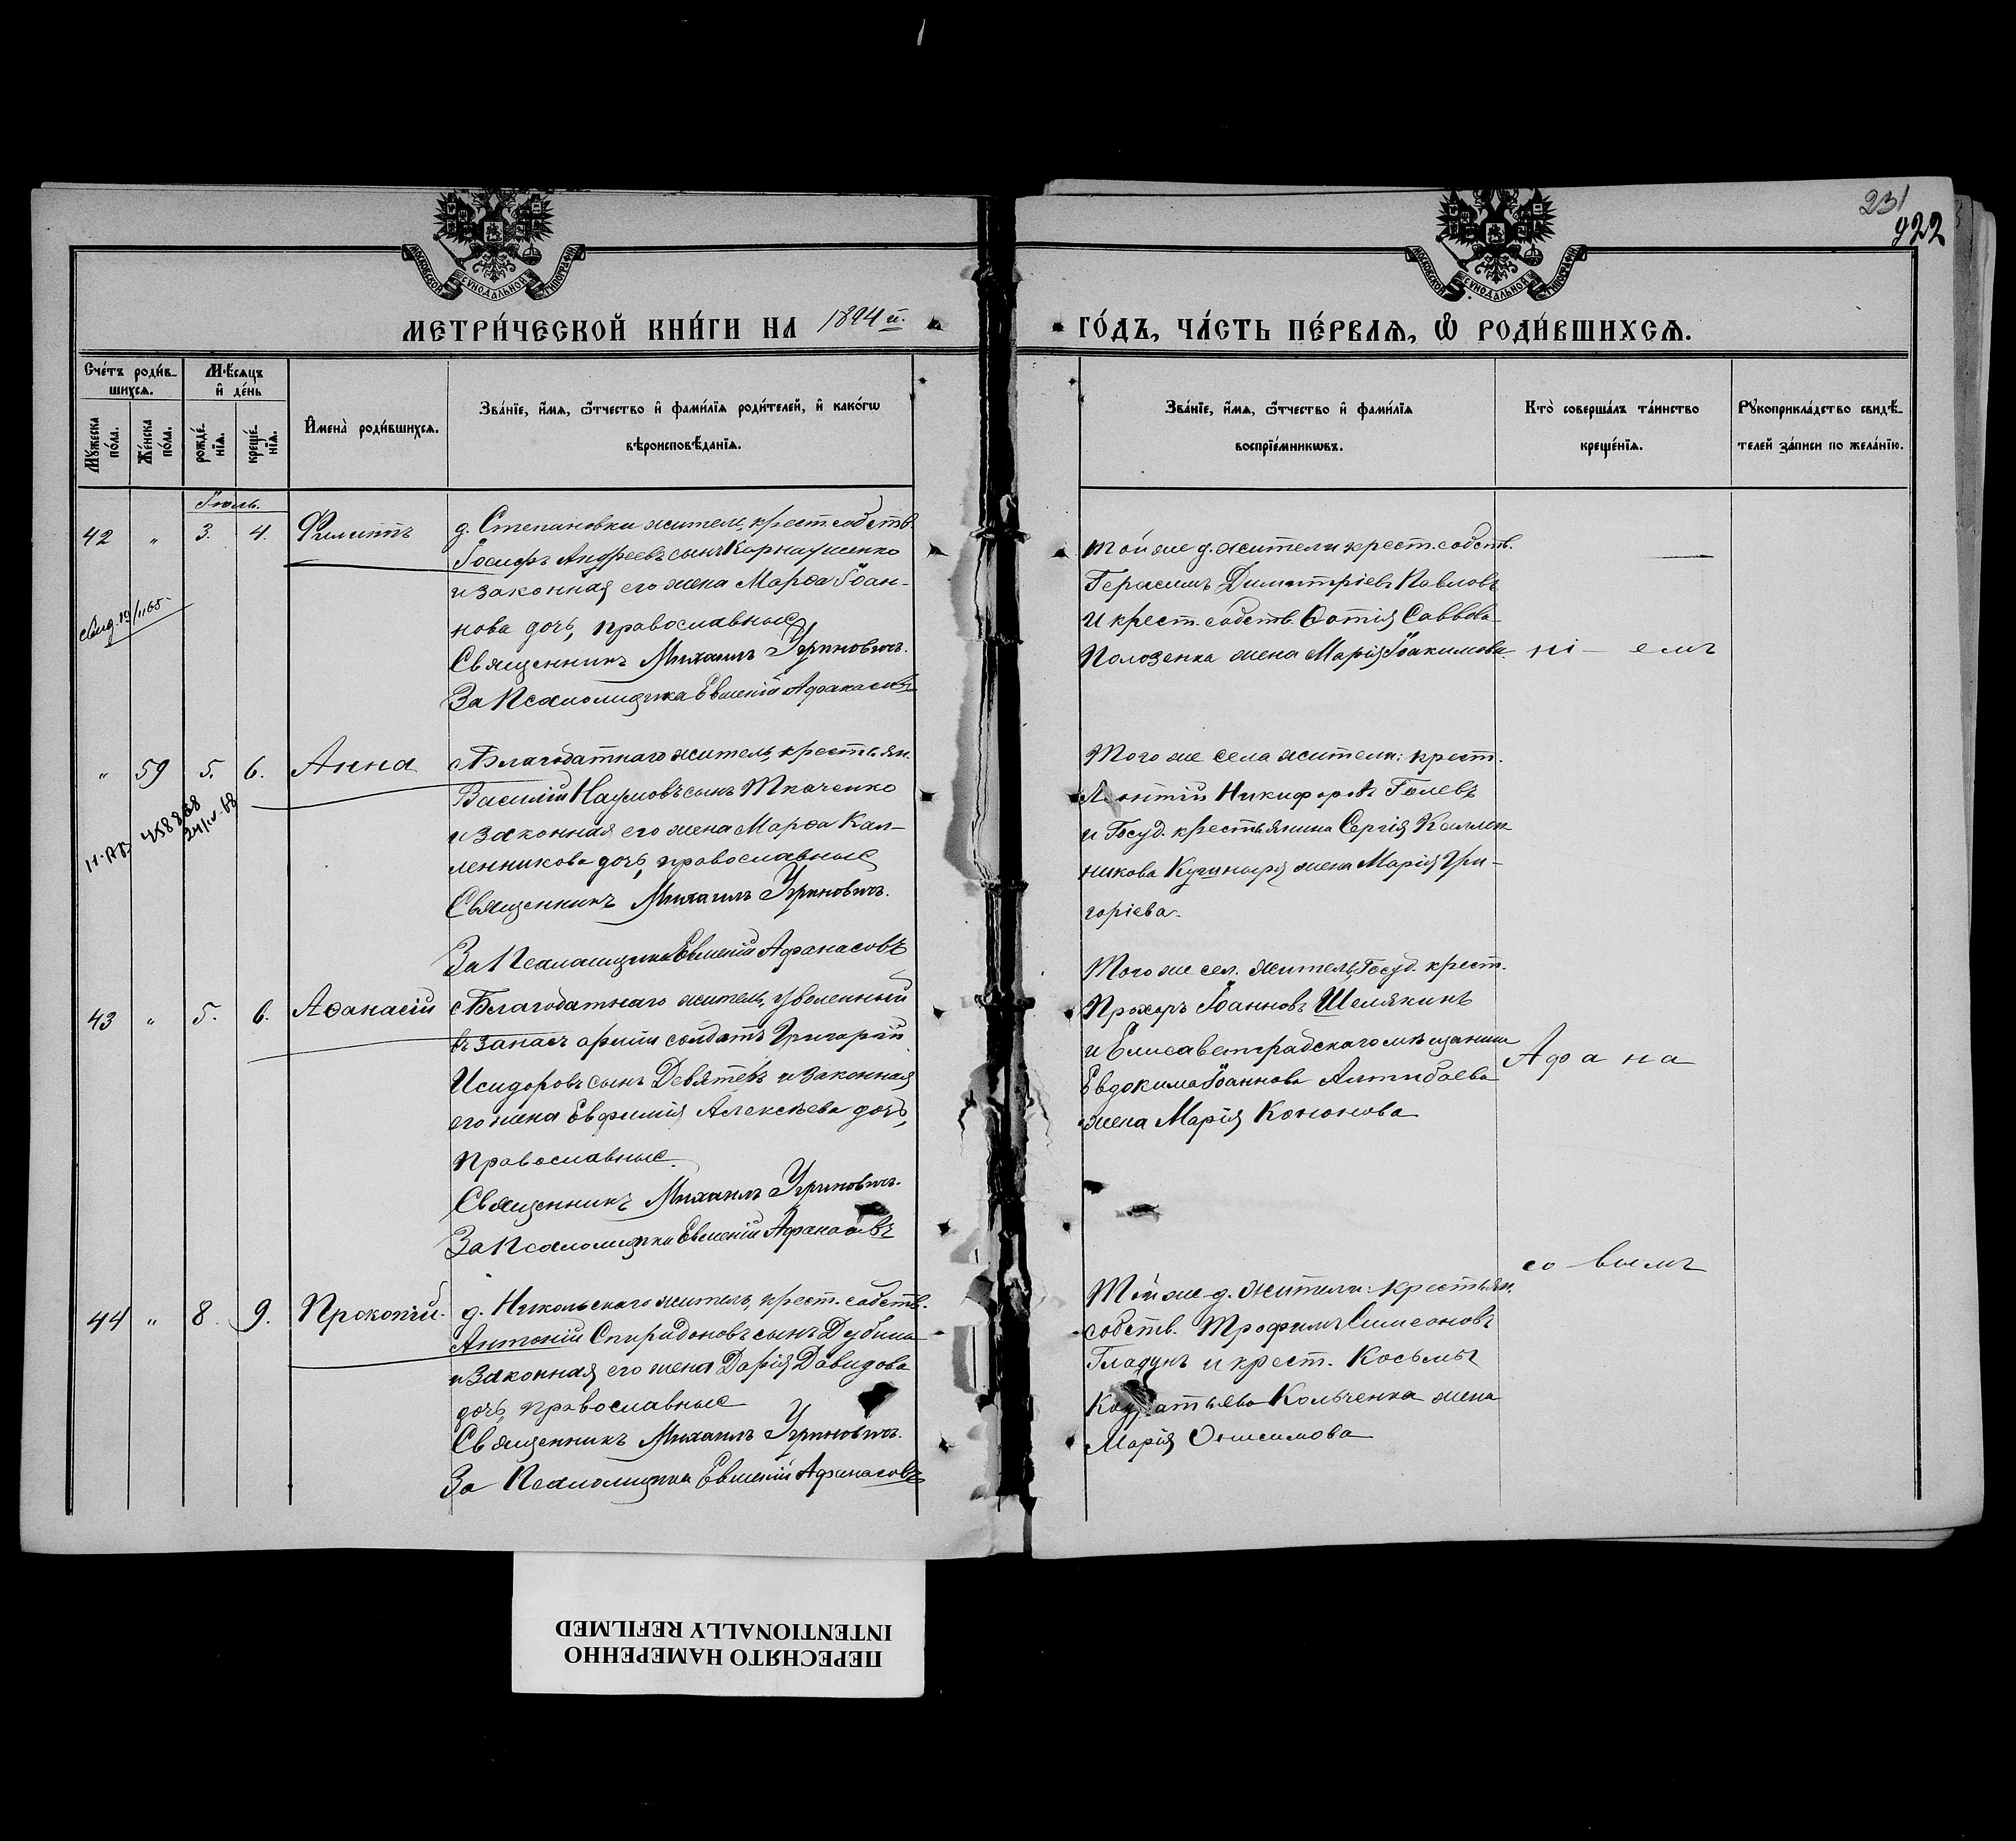 231
922
МОСКОВСКОЙ СѴНОДАЛЬНОЙ ТИПОГРАФІИ
МОСКОВСКОЙ СѴНОДАЛЬНОЙ ТИПОГРАФІИ
МЕТРИ́ЧЕСКОЙ КНИ́ГИ НА 1894 й.
ГО́ДЪ, ЧА́СТЬ ПЕ́РВАЯ, Ѿ РОДИ́ВШИХСЯ.
Сче́тъ роди́в-
шихся.
Мꙋ́жеска по́ла.
Же́нска по́ла.
Мѣ́сяцъ и де́нь
рожде́-нїя.
креще́-нїя.
И҆мена̀ роди́вшихся.
Зва́нїе, и҆́мя, ѻ҆́тчество и҆ фами́лїя роди́телей, и҆ како́гѡ
вѣроисповѣ́данїя.
Зва́нїе, и҆́мя, ѻ҆́тчество и҆ фами́лїя
воспрїе́мникѡвъ.
Кто̀ соверша́лъ та́инство
креще́нїя.
Рꙋкоприкла́дство свидѣ́-
телей за́писи по жела́нїю.
Іюль.
42 " 3. 4. Филиппъ
д. Степановки житель, крест. собств.
Іосифъ Андреевъ сынъ Карнаушенко
и законная его жена Марѳа Іоан-
нова дочь, православные
Священникъ Михаилъ Уриновичъ.
За Псаломщика Евменій Афанасовъ
той же д. жители крест. собств.
Герасимъ Димитріевъ Павловъ
и крест. собств. Ѳотія Саввова
Полозенка жена Марія Іоакимова.
ні - емъ
" 59 5. 6. Анна
с. Благодатнаго житель, крестьян.
Василій Наумовъ сынъ Ткаченко
и законная его жена Марѳа Кал-
ленникова дочь, православные
Священникъ Михаилъ Уриновичъ.
За Псаломщика Евменій Афанасовъ
Того же села жители: крест.
Леонтій Никифоровъ Голевъ
и Госуд. крестьянина Сергія Каллен
никова жена Марія Гри-
горіева.
43 " 5. 6. Аѳанасій
с. Благодатнаго житель, уволенный
въ запасъ арміи солдатъ Григорій
Исидоровъ сынъ и законная
его жена Евфимія Алексѣева дочь,
православные.
Священникъ Михаилъ Уриновичъ.
За Псаломщика Евменій Афанасовъ
Того же сел. житель, Госуд. крест.
Прохоръ Іоанновъ Шелякинъ
и Елисаветградскаго мѣщанина
Евдокима Іоаннова
жена Марія Кононова
Афа на
со вымъ
44 " 8. 9. Прокопій.
д. Никольскаго житель, крест. собств.
Антоній Спиридоновъ сынъ Дубина
и законная его жена Дарія Давидова
дочь, православные
Священникъ Михаилъ Уриновичъ.
За Псаломщика Евменій Афанасовъ
Той же д. жители: крестьян.
собств. Трофимъ Симеоновъ
Гладунъ и крест. Косьмы
Кольченка жена
Марія Онисимова
ПЕРЕСНЯТО НАМЕРЕННО
INTENTIONALLY REFILMED